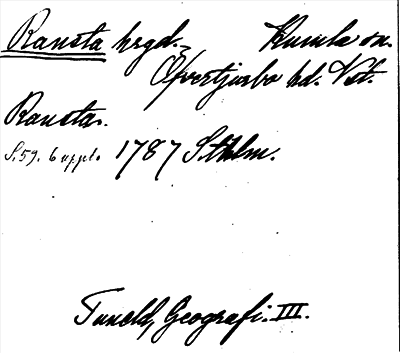 Ransta hrgd. Kumla sn.
Öfvertjurbo hd. Vstm.
Ransta.
S.59. 6 uppl. 1787 Sthlm.
Tuneld, Geografi. III.